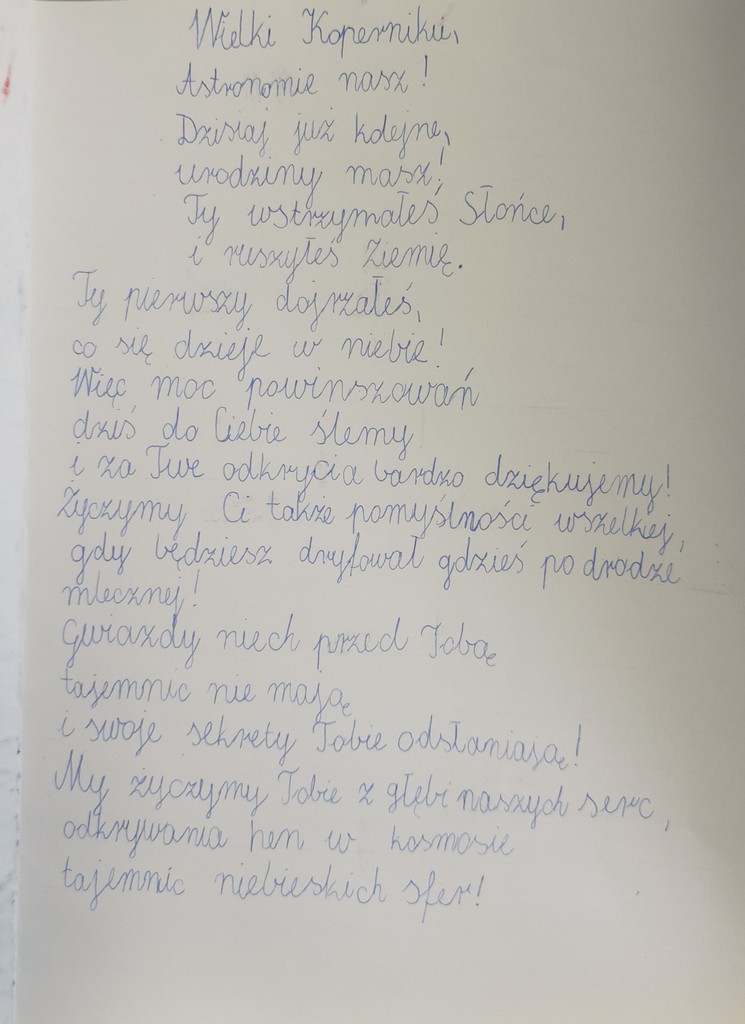 Wielki Koperniku,
Astronomie nasz!
Dzisiaj już kolejne,
urodziny masz!
Ty wstrzymałeś Słońce,
i ruszyłeś Ziemię.
Ty pierwszy dojrzałeś,
co się dzieje w niebie!
Więc moc powinszowań
dziś do Ciebie ślemy
i za Twe odkrycia bardzo dziękujemy!
Życzymy Ci także pomyślności wszelkiej,
gdy będziesz dryfował gdzieś po drodze
mlecznej!
Gwiazdy niech przed Tobą
tajemnic nie mają
i swoje sekrety Tobie odsłaniają!
My życzymy Tobie z głębi naszych serc,
odkrywania hen w kosmosie
tajemnic niebieskich sfer!